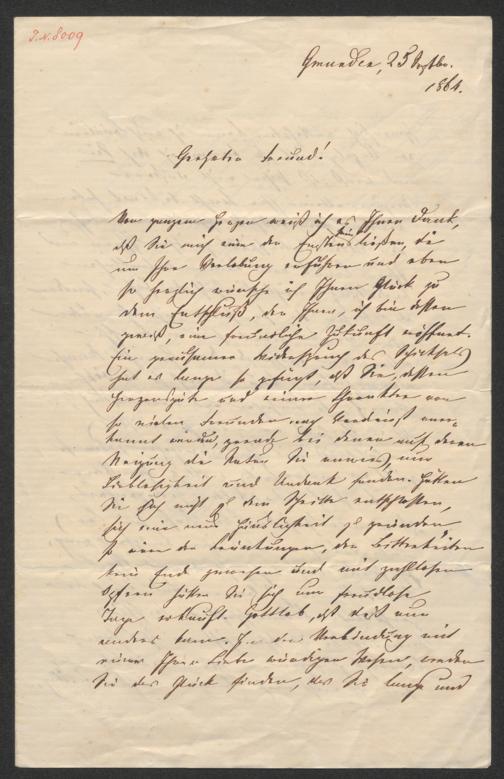 I.N. 8009
Gmunden, 25 Septbr.
1864.
Geehrter Freund!
Von ganzem Herzen weiß ich es Ihnen Dank,
daß Sie mich einen der Ersten sein ließen, die
um Ihre Verlobung erfuhren und eben
so herzlich wünsche ich Ihnen Glück zu
dem Entschluß, der Ihnen, ich bin dessen
gewiß, eine freundliche Zukunft eröffnet.
Ein grausamer Widerspruch des Schicksals
hat es lange so gefügt, daß Sie, dessen
Herzensgüte und reiner Charakter von
so vielen Freunden nach Verdienst aner-
kannt werden, gerade bei denen auf deren
Neigung die Natur Sie anwies, nur
Lieblosigkeit und Undank fanden. Hätten
Sie sich nicht zu dem Schritte entschlossen,
sich eine neue Häuslichkeit zu gründen
so wäre der Kränkungen, der Bitterkeiten
kein Ende gewesen und mit zahllosen
Opfern hätten Sie sich nur freudlose
Tage erkauft. Gottlob, daß dieß nun
anders kam. In der Verbindung mit
einem Ihrer Liebe würdigen Wesen, werden
Sie das Glück finden, das Sie lange und